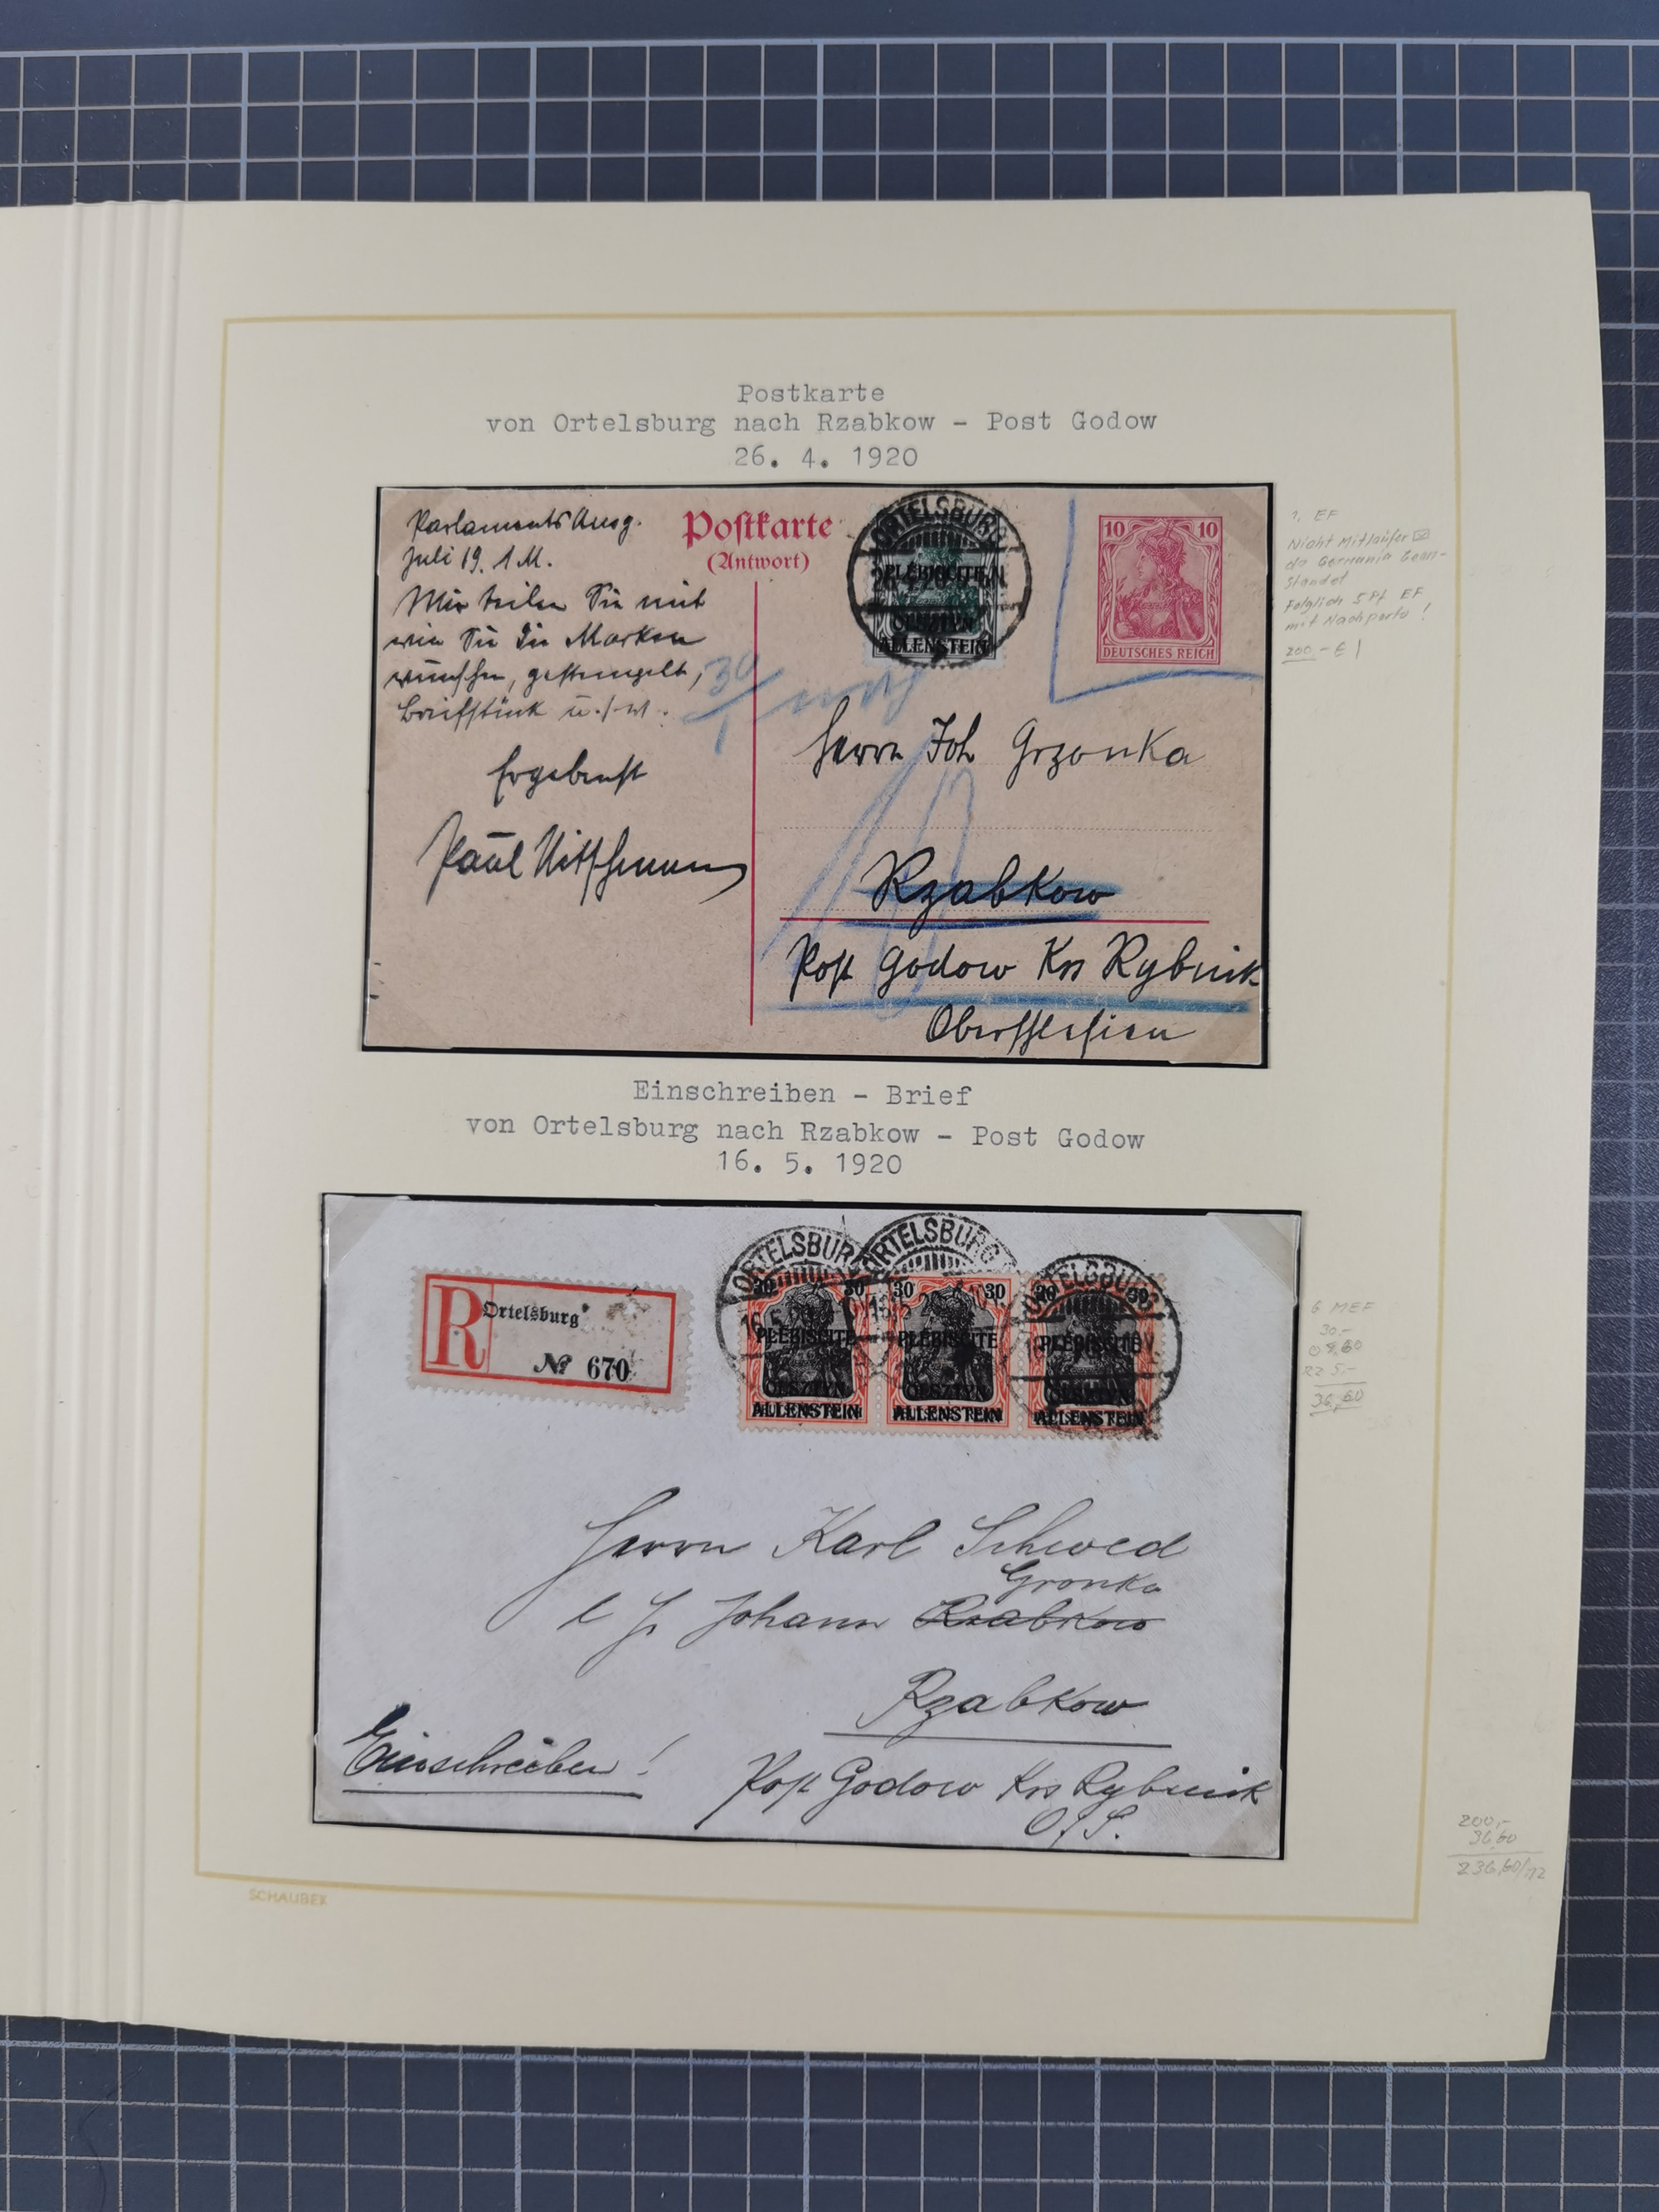 Postkarte
von Ortelsburg nach Rzabkow - Post Godow
26. 4. 1920
Parlaments Ausg.
Juli 19. 1 M.
Mir teilen Sie mit
wie Sie die Marken
wünschen, gestempelt,
Briefstück u.s.w.
Ergebenst
Paul
Postkarte
(Antwort)
ORTELSBURG
26.4.20
PLÉBISCITE
OLSZTYN
ALLENSTEIN
10 10
DEUTSCHES REICH
Herrn Joh Grzonka
Rzabkow
Post Godow Krs Rybnik
Oberschlesien
1, EF
Nicht Mitläufer
da Germania bean-
standet
Folglich 5 Pf EF
mit Nachporto !
200,- €
Einschreiben - Brief
von Ortelsburg nach Rzabkow - Post Godow
16. 5. 1920
R Ortelsburg
№ 670
ORTELSBURG ORTELSBURG ORTELSBURG
30 30 30 30 30 30
PLÉBISCITE PLÉBISCITE PLÉBISCITE
OLSZTYN OLSZTYN OLSZTYN
ALLENSTEIN ALLENSTEIN ALLENSTEIN
Herrn Karl Schwed
Gronka
Johann Rzabkow
Rzabkow
Einschreiben!
Post Godow Krs Rybnik
O/S.
6 MEF
30,-
RZ 5,-
36,60
200,-
36,60
236,60
SCHAUBEK